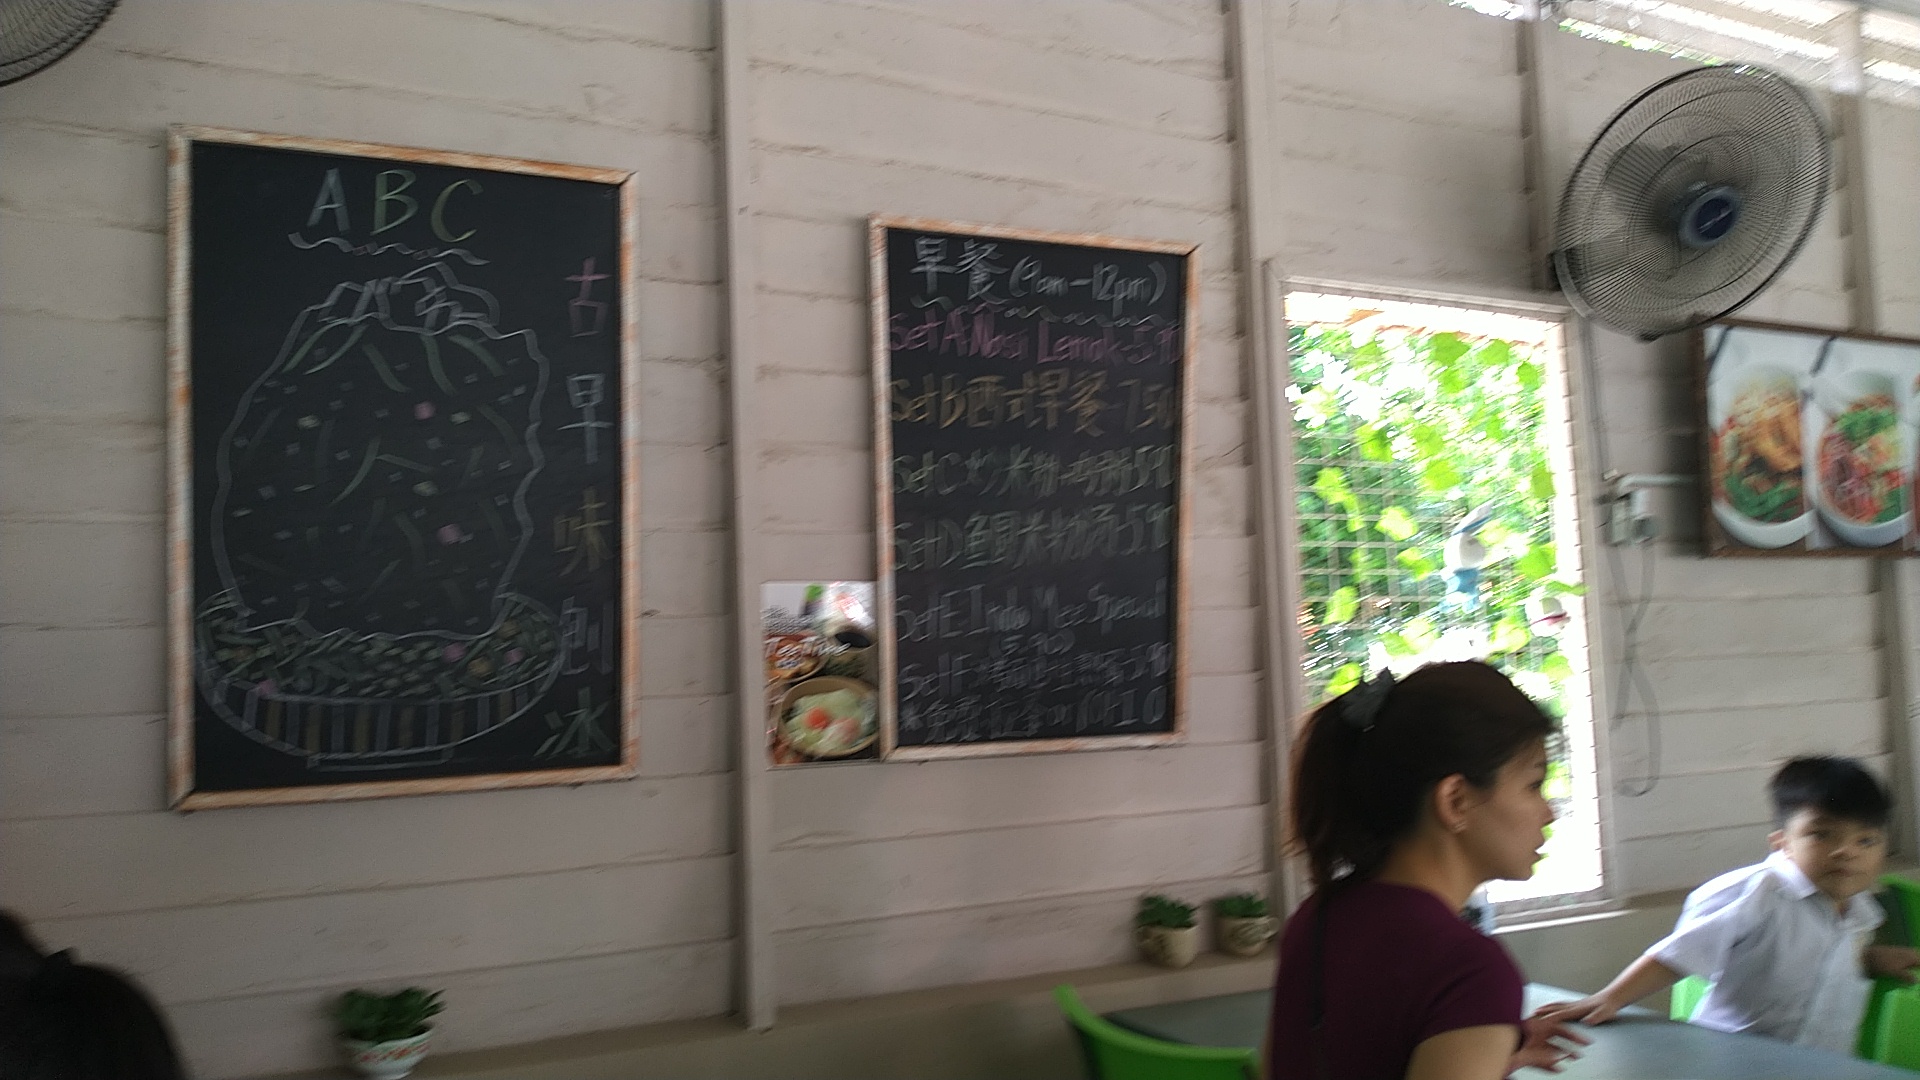 ABC
古早味刨冰
早餐 (9am-12pm)
Set A Nasi Lemak 5.90
Set B 西式早餐 7.50
Set C 炒米粉 5.90
Set D 鱼 米粉汤 5.90
Set E Indo Mee Special
5.90
Set F 5.90